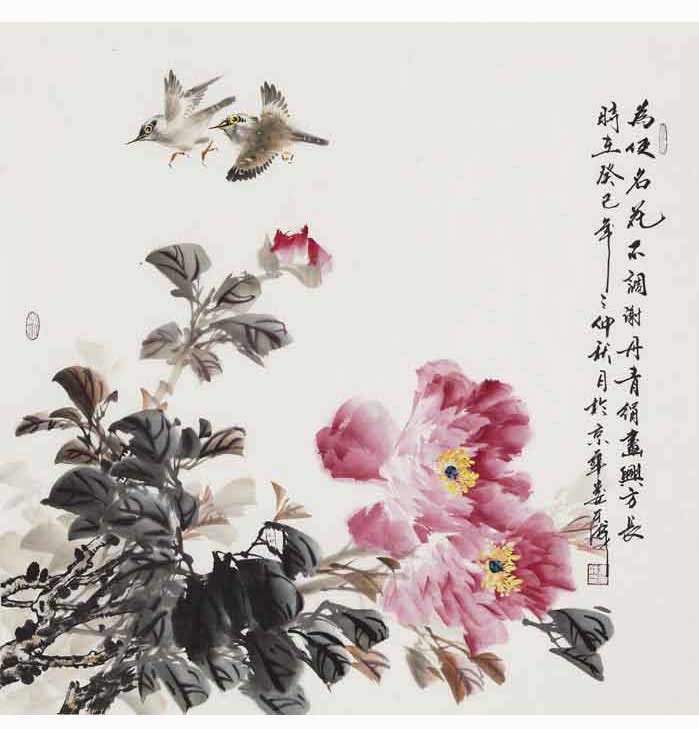 為使名花不調謝丹青絹畫興方長
時在癸巳年之仲秋月於京華婁